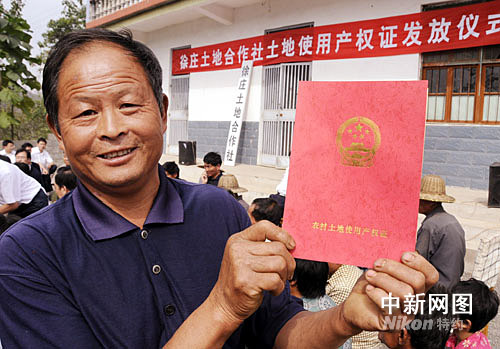 徐庄土地合作社土地使用产权证发放仪式
徐庄土地合作社
农村土地使用产权证
中新网图
Nikon 特约